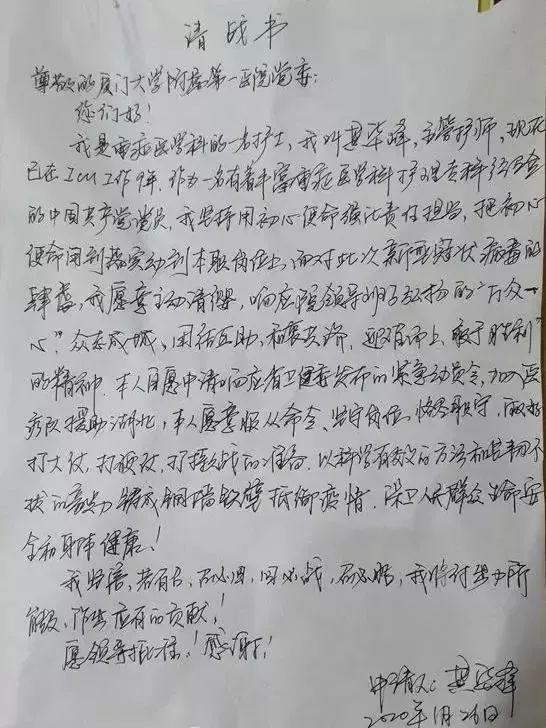 请战书
尊敬的厦门大学附属第一医院党委:
您们好!
我是重症医学科的一名护士,我叫 主管护师,现
已在ICU工作9年.作为一名有着丰富重症医学科护理专科经验
的中国共产党党员,我坚持用初心使命强化责任担当,把初心
使命用到落实动到本职岗位上,面对此次新型冠状病毒的
肆虐,我愿意主动请缨,响应院领导 弘扬的“万众一
心”众志成城、团结互助、和衷共济、迎难而上、敢于胜利”
的精神.本人自愿申请响应省卫健委发布的紧急动员令,加入医
疗队援助湖北,本人愿意服从命令、坚守岗位、恪尽职守,做好
打大仗,打硬仗,打持久战的准备.以科学有效的方法和坚韧不
拔的毅力铸成铜墙铁壁抵御疫情.保卫人民群众生命安
全和身体健康!
我坚信,若有召,召必回,回必战,战必胜,我将付出力所
能及,作出应有的贡献!
愿领导批准!感谢!
申请人:
2020年1月26日